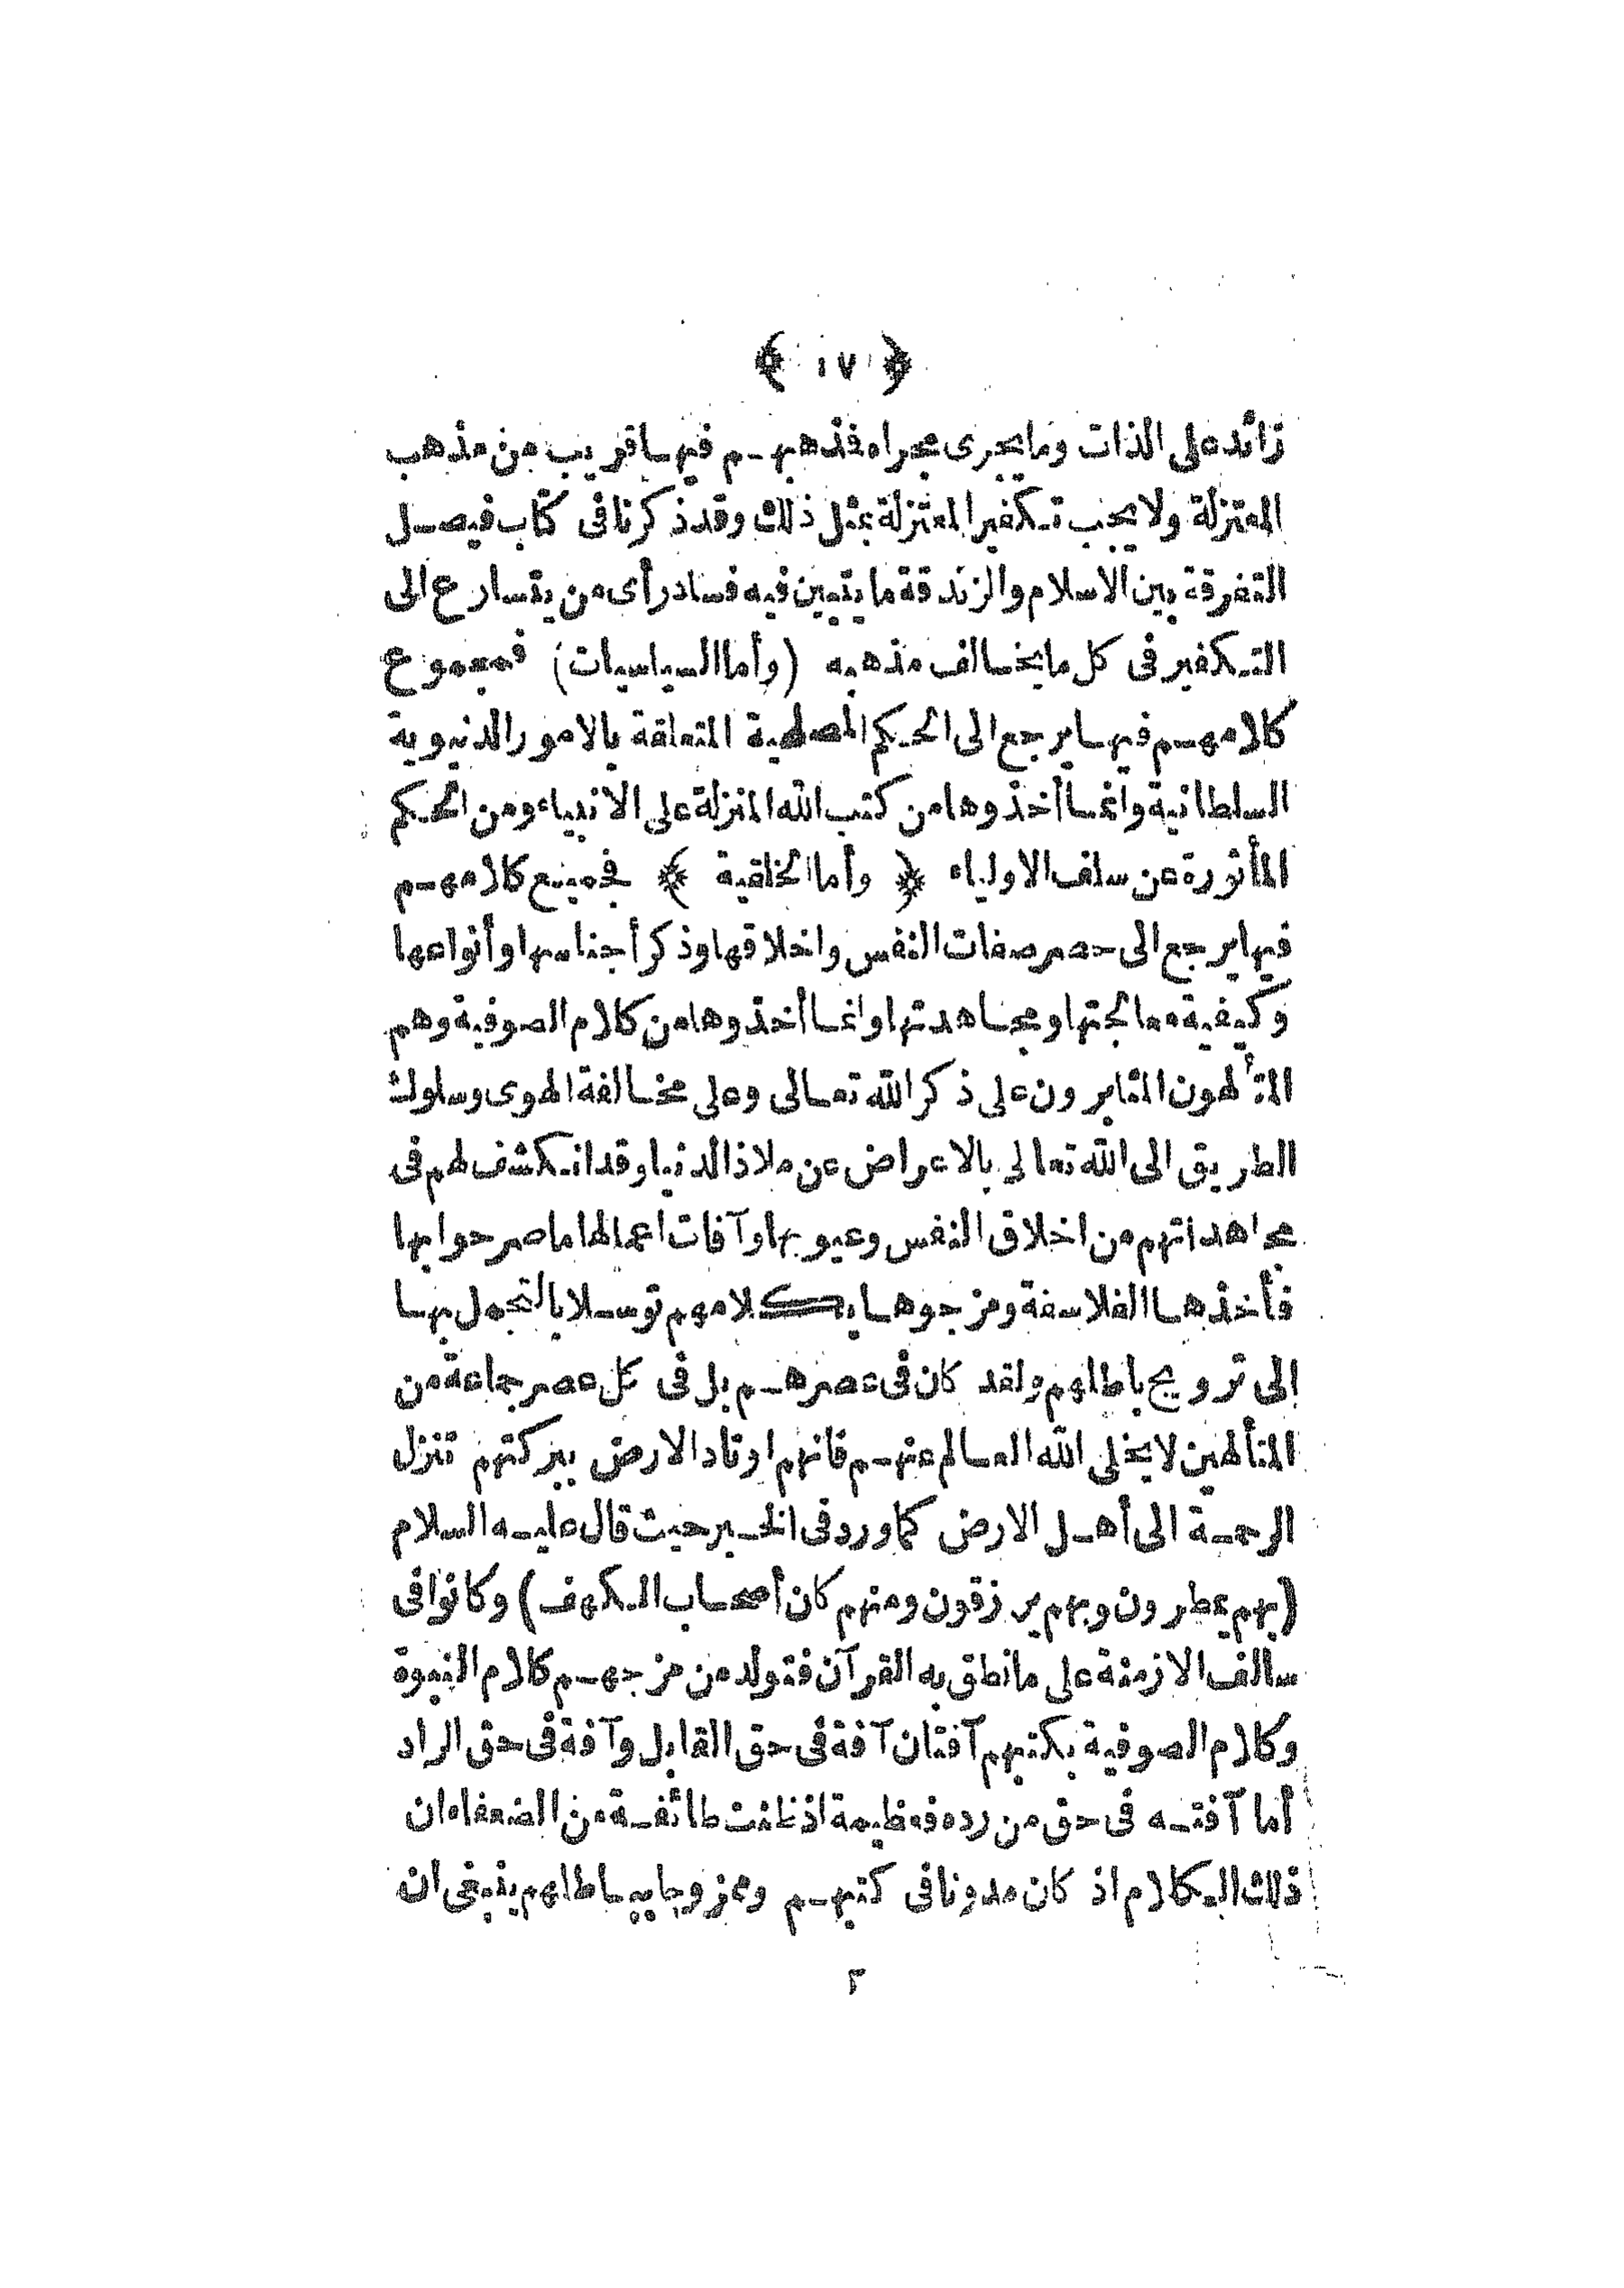 ﴿ ١٧ ﴾
زائد على الذات وما يجرى مجراه فذهبهم فيها قريب من مذهب
المعتزلة ولا يجب تكفير المعتزلة بمثل ذلك وقد ذكرنا فى كتاب فيصل
التفرقة بين الاسلام والزندقة ما يتبين فيه فساد رأى من يتسارع الى
التكفير فى كل ما يخالف مذهبه (وأما السياسيات) فمجموع
كلامهم فيها يرجع الى الحكم المصلحية المتعلقة بالامور الدنيوية
السلطانية وانما أخذوها من كتب الله المنزلة على الانبياء ومن الحكم
المأثورة عن سلف الاولياء ﴿ وأما الخلقية ﴾ فجميع كلامهم
فيها يرجع الى حصر صفات النفس واخلاقها وذكر أجناسها وأنواعها
وكيفية معالجتها ومجاهدتها وانما أخذوها من كلام الصوفية وهم
المتألهون المثابرون على ذكر الله تعالى وعلى مخالفة الهوى وسلوك
الطريق الى الله تعالى بالاعراض عن ملاذ الدنيا وقد انكشف لهم فى
مجاهداتهم من اخلاق النفس وعيوبها وآفات اعمالها ما صرحوا بها
فأخذها الفلاسفة ومزجوها بكلامهم توسلا بالتجمل بها
إلى ترويج باطلهم ولقد كان فى عصرهم بل فى كل عصر جماعة من
المتألهين لا يخلى الله العالم عنهم فانهم اوتاد الارض ببركتهم تنزل
الرحمة الى أهل الارض كما ورد فى الخبر حيث قال عليه السلام
(بهم يمطرون وبهم يرزقون ومنهم كان أصحاب الكهف) وكانوا فى
سالف الازمنة على ما نطق به القرآن فتولد من مزجهم كلام النبوة
وكلام الصوفية بكتبهم آفتان آفة فى حق القابل وآفة فى حق الراد
أما آفته فى حق من رده فعظيمة اذ ظنت طائفة من الضعفاء ان
ذلك الكلام اذ كان مدونا فى كتبهم وممزوجا بباطلهم ينبغى ان
٢